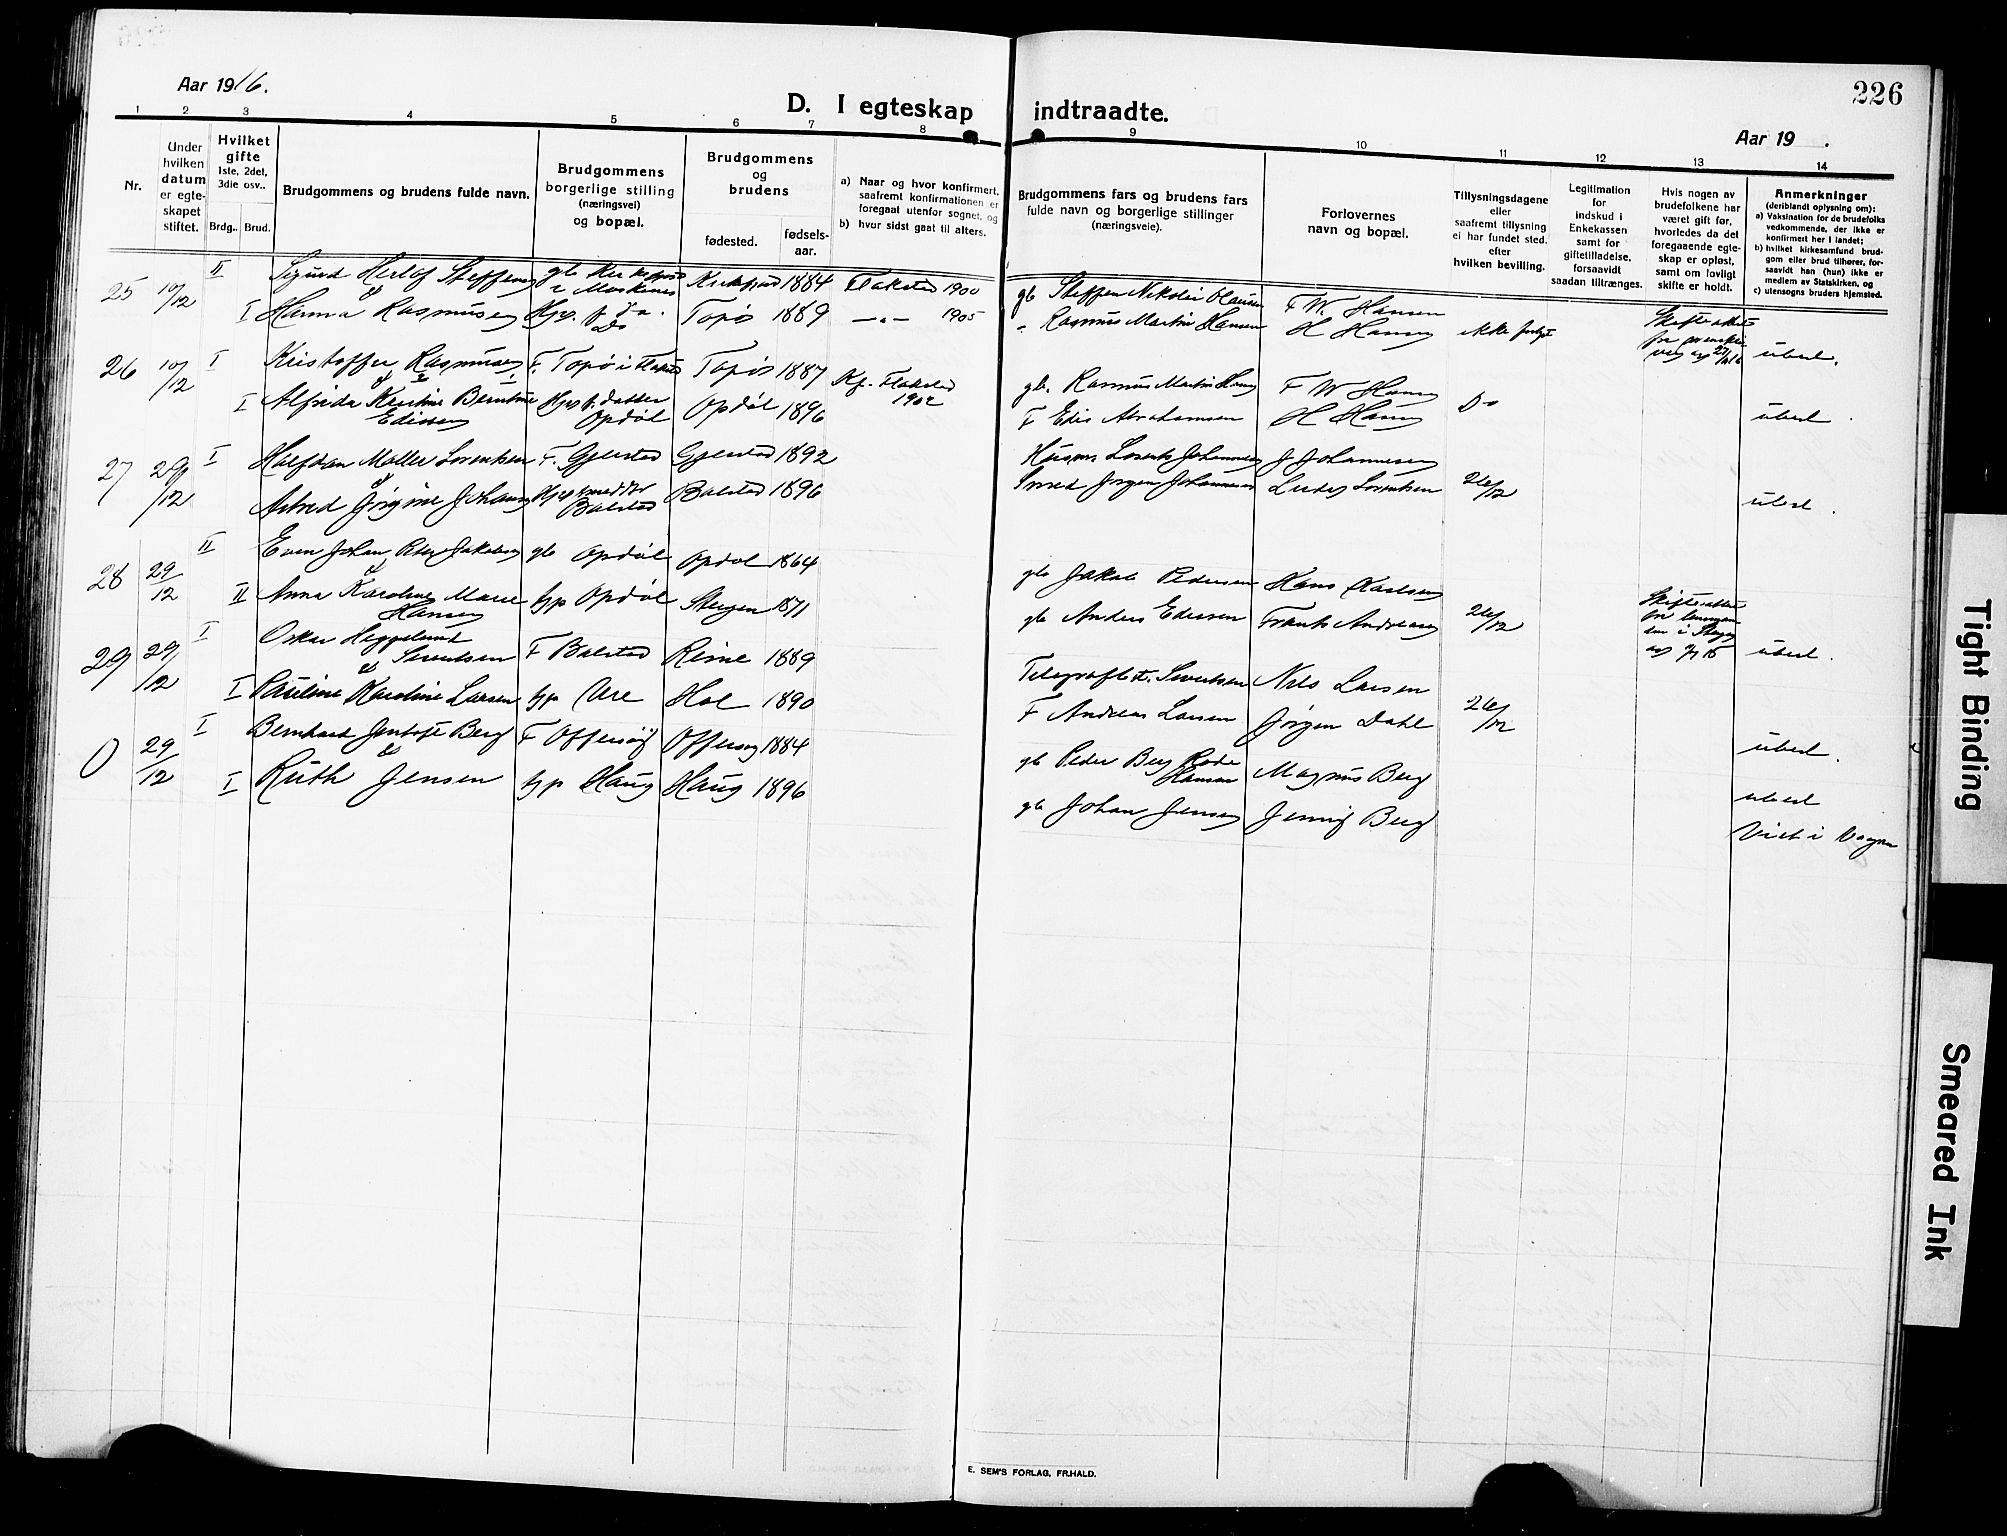 226
Aar 1916.
D. I egteskap indtraadte.
Aar 19 .
1 2 3 4 5 6 7 8 9 10 11 12 13 14
Nr.
Under
hvilken
datum
er egte-
skapet
stiftet.
Hvilket
gifte
1ste, 2det,
3die osv..
Brdg.. Brud.
Brudgommens og brudens fulde navn.
Brudgommens
borgerlige stilling
(næringsvei)
og bopæl.
Brudgommens
og
brudens
fødested. fødsels-
aar.
a) Naar og hvor konfirmert,
saafremt konfirmationen er
foregaat utenfor sognet, og
b) hvor sidst gaat til alters.
Brudgommens fars og brudens fars
fulde navn og borgerlige stillinger
(næringsveie).
Forlovernes
navn og bopæl.
Tillysningsdagene
eller
saafremt tillysning
ei har fundet sted.
efter
hvilken bevilling.
Legitimation
for
indskud i
Enkekassen
samt for
giftetilladelse.
forsaavidt
saadan tiltrænges.
Hvis nogen av
brudefolkene har
været gift før,
hvorledes da det
foregaaende egte-
skap er opløst,
samt om lovligt
skifte er holdt.
Anmerkninger
(deriblandt oplysning om):
a) Vaksination for de brudefolks
vedkommende, der ikke er
konfirmert her i landet;
b) hvilket kirkesamfund brud-
gom eller brud tilhører, for-
saavidt han (hun) ikke er
medlem av Statskirken, og
c) utensogns bruders hjemsted.
25 10/12 II Sigurd Herlof Steffensen gb Kirkefjord
i Moskenes Kirkefjord 1884 Flakstad 1900
gb Steffen Nikolai Olausen F. W. Hansen
&
I Hanna Rasmussen Topø 1889 —"— 1905
" Rasmus Martin Hansen H Hansen ikke forlyst ubesl.
26 10/12 I Kristoffer Rasmussen F. Topø i Flakstad Topø 1887 Kf. Flakstad
1902
gb. Rasmus Martin Hansen F W Hansen
&
I Alfrida Kristine Berntine
Edissen Opdøl Opdøl 1896
F Edis Abrahamsen H Hansen Do ubesl.
27 29/12 I Halfdan Møller Lorentsen F. Gjelstad Gjelstad 1892
Husm Lorents Johannesen J Johannesen
&
Astrid Jørgine Johansen Balstad Balstad 1896
Smed Jørgen Johannesen Ludvig Lorentsen 26/12 ubesl.
28 29/12 II Even Johan Peter Jakobsen gb Opdøl Opdøl 1864
gb Jakob Pedersen Hans Karlsen
&
II Anna Karoline Marie
Hansen hjp Opdøl Steigen 1871
gb Anders Edissen Frants Andreasen 26/12 ubesl.
29 29/12 I Oskar Heggelund
Sivertsen F Balstad Reine 1889
Telegrafbst. Sivertsen Nils Larsen
&
I Pauline Karoline Larsen hjp Ure Hol 1890
F Andreas Larsen Jørgen Dahl 26/12 ubesl.
0 29/12 I Bernhard Jentoft Berg F Offersøy Offersøy 1884
gb Peder Berg Rode
Hansen Magnus Berg
&
I Ruth Jensen hjp Haug Haug 1896
gb Johan Jensen Jenny Berg ubesl
Viet i Vaagan
E. SEM'S FORLAG, FR.HALD.
Tight Binding
Smeared Ink